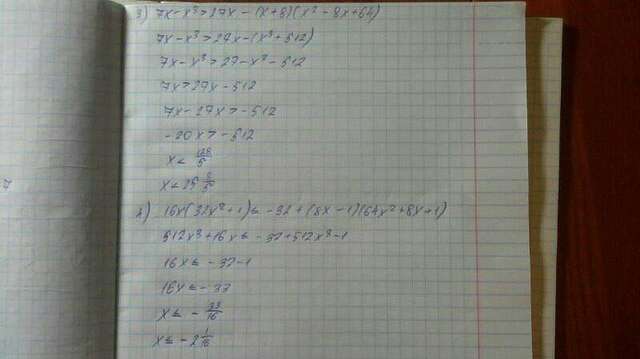 3) 7x-x³>27x-(x+8)(x²-8x+64)
7x-x³>27x-(x³+512)
7x-x³>27-x³-512
7x>27x-512
7x-27x>-512
-20x>-512
x<128/5
x<25 3/5
4) 16x(32x²+1)≤-32+(8x-1)(64x²+8x+1)
512x³+16x≤-32+512x³-1
16x≤-32-1
16x≤-33
x≤-33/16
x≤-2 1/16